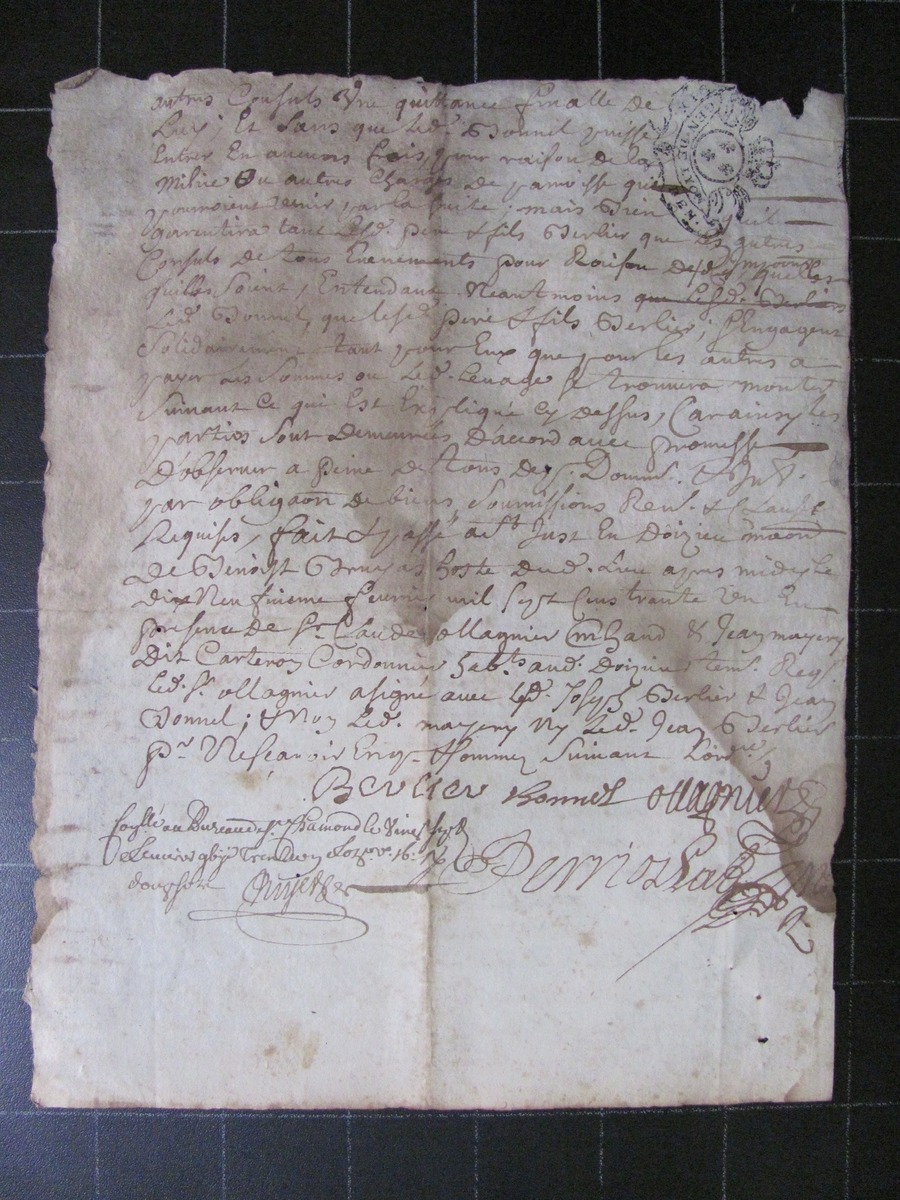 autres Consuls Une quittance finalle de
Luy; Et Sans que led. Bonnel puisse
Entrer En aucuns frais, pour raison de la
Milice Ou autres Charges de parroisse qui
pourroient venir par la suite; mais Bien
garentira tant lesd. pere & fils Berlier que les autres
Consuls de tous Evenements pour Raison desd. quelles
quilles Soient, Entendant Neantmoins que lesd. Berliers
Led. Bonnel, que lesd. pere & fils Berlier; s'Engagent
Solidairement tant pour Eux que pour les autres a
payer les Sommes ou led. levage se trouvera monter
Suivant ce qui Est Expliqué cy dessus, Car ainsy les
parties sont demeurées D'accord avec promesse
D'observer a peine de tous dep. Domm. & Int.
par obligaon de biens, Soumissions Ren. & Clauses
Requises, fait & passé a St Just En Doizieu maison
De Benoist hoste dud. Lieu apres midy le
dix Neufvieme fevrier mil sept Cens trante Un En
presence de Sr. Claude ollagnier mhand & Jean mayery
Dit Carteron Cordonnier hab.ts aud. Doizieu tem. Req.
led. Sr. ollagnier a signé avec led. Joseph Berlier & Jean
Bonnel; & Non led. mayery Ny led. Jean Berlier
pr. Ne scavoir Enq. & sommez Suivant L'ord.ce
Berlier Bonnel ollagnier
au Bureau de St. Chamond le Vinet Sept
fevrier